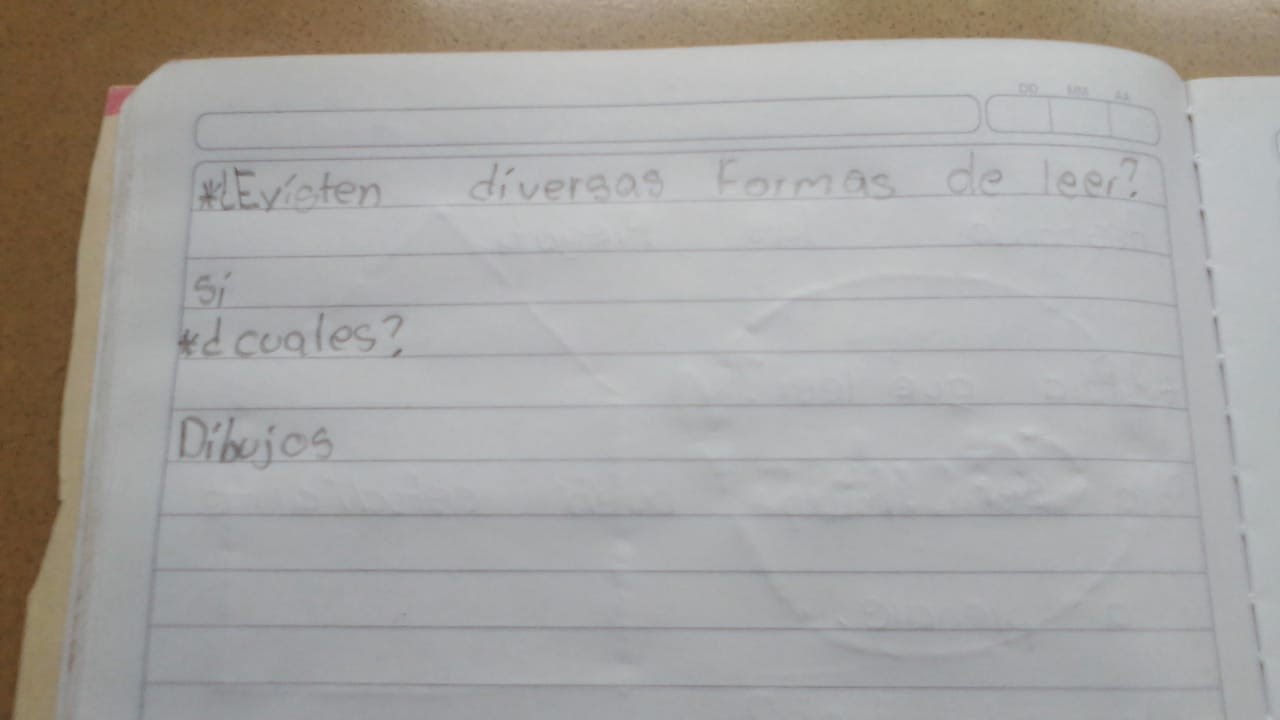 DD MM AA
*¿Evisten diversas Formas de leer?
Sí
*¿cuales?
Dibujos